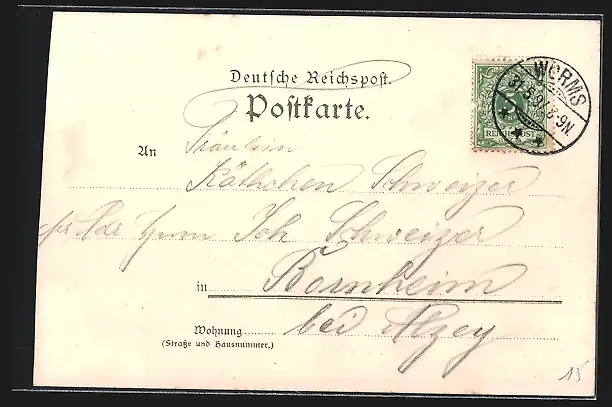 Deutsche Reichspost.
Postkarte.
WORMS
8-9N
5
REICHSPOST
An Fräulein
Käthchen Schweizer
pr Adr Herrn Joh Schweizer
in Bornheim
bei Alzey
Wohnung
(Straße und Hausnummer.)
15